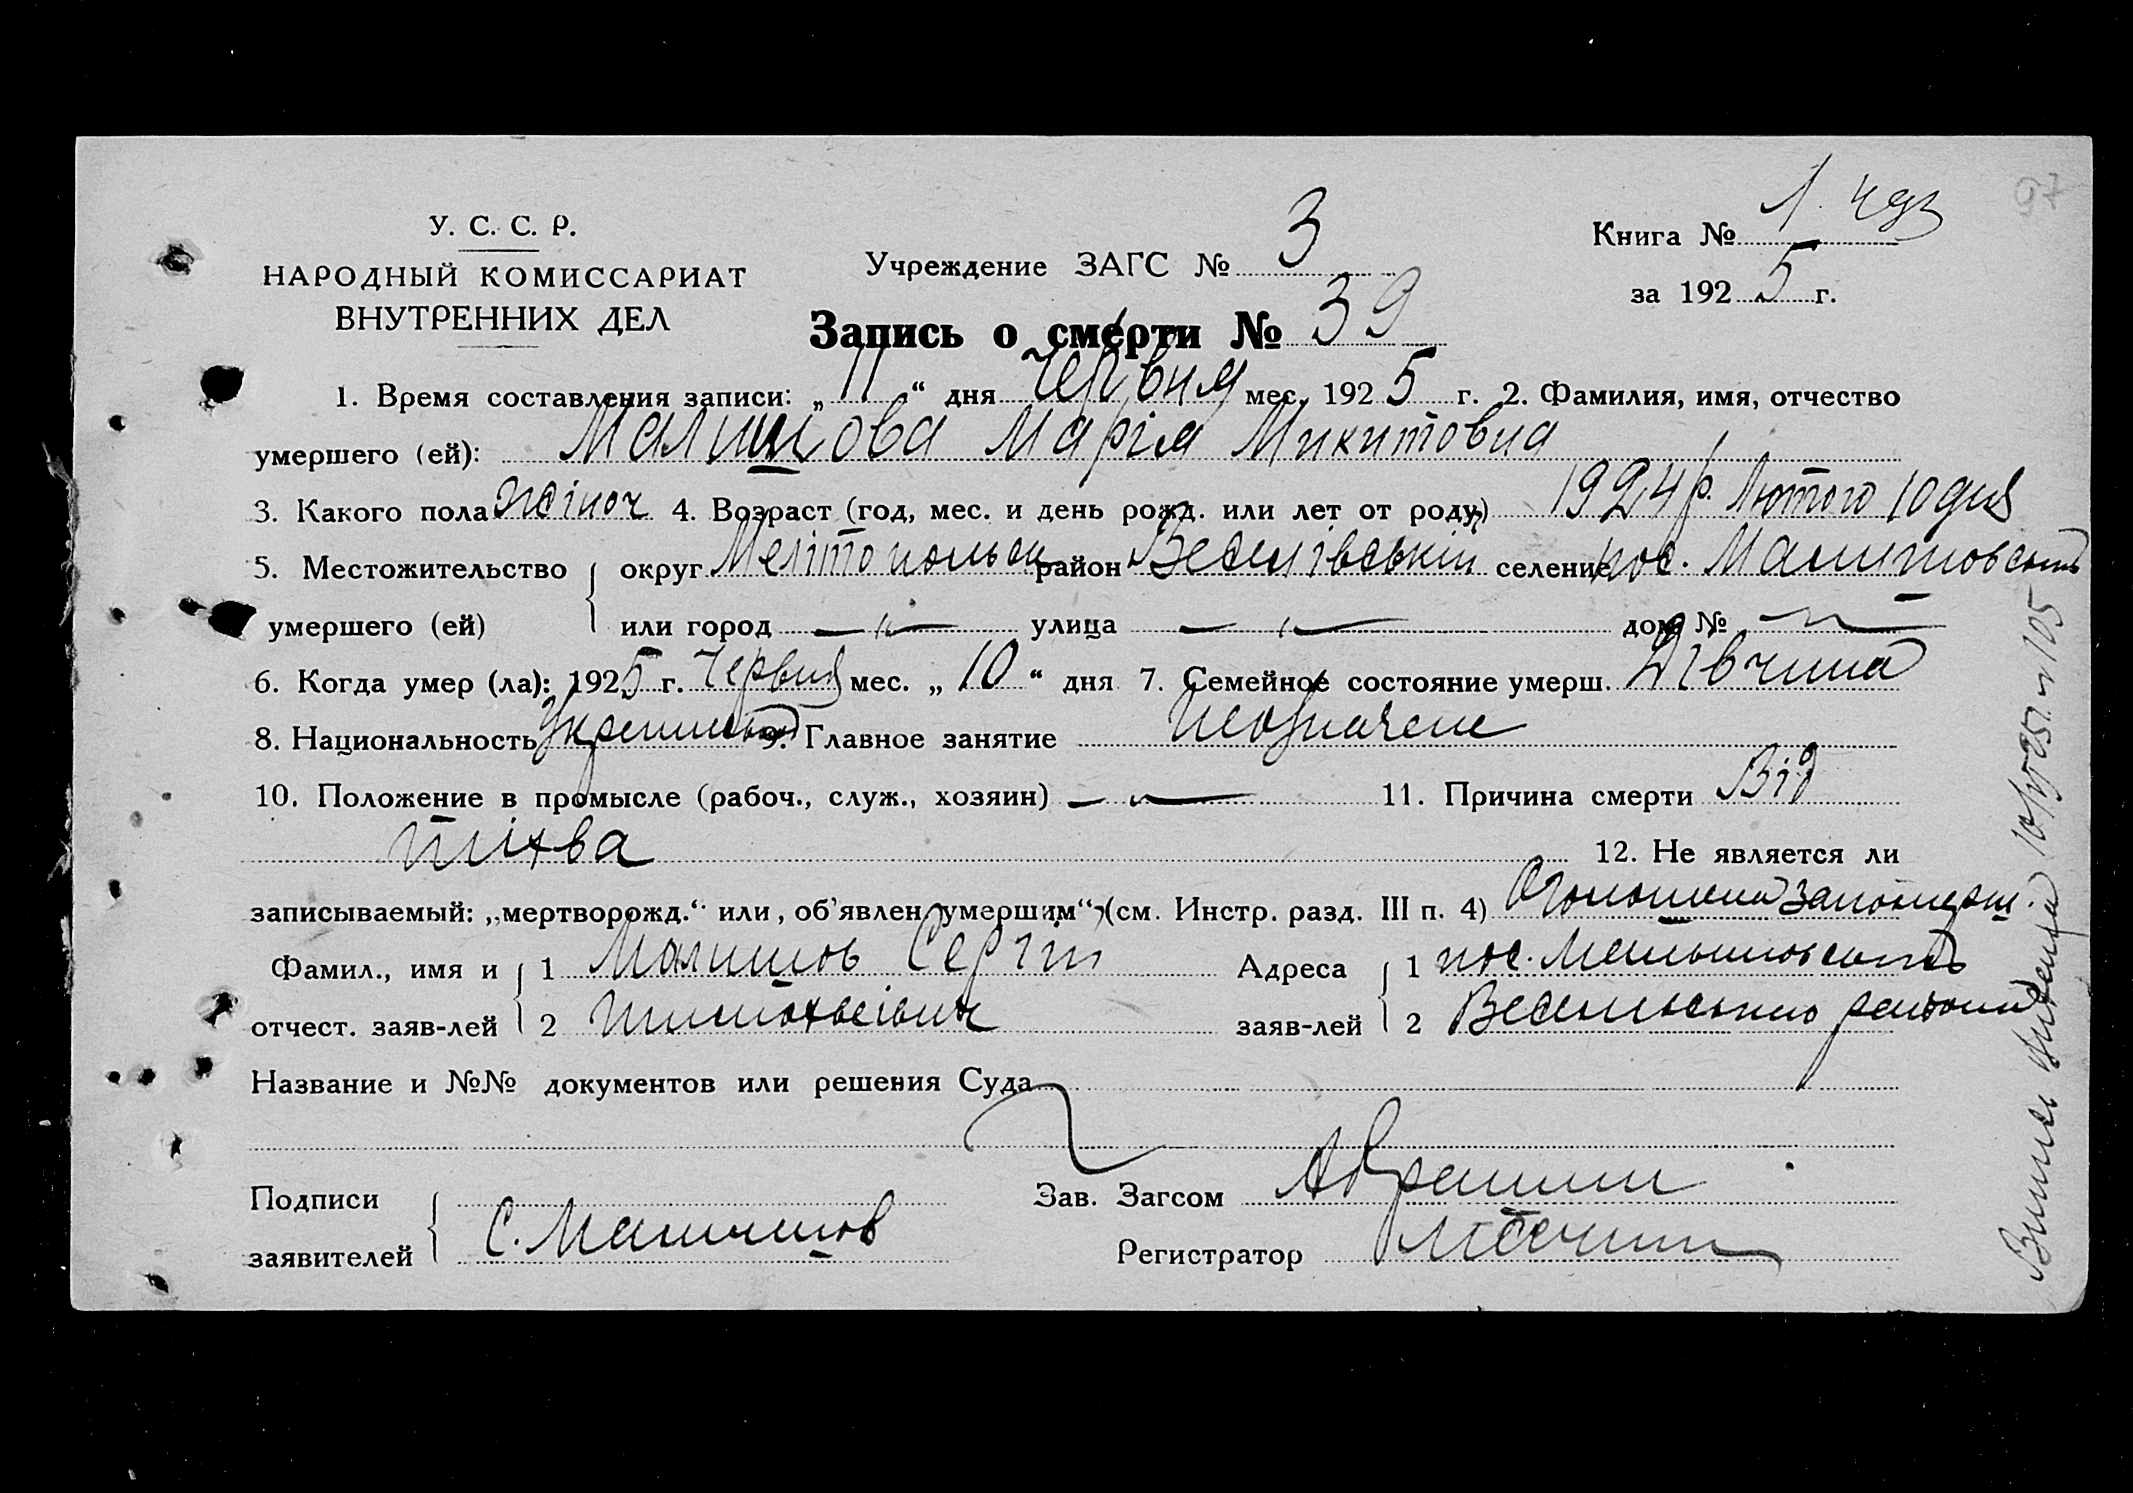 97
У. С. С. Р.
НАРОДНЫЙ КОМИССАРИАТ
ВНУТРЕННИХ ДЕЛ
Учреждение ЗАГС № 3
Книга № 1
за 1925 г.
Запись о смерти № 39
1. Время составления записи: „11“ дня Червня мес. 1925 г. 2. Фамилия, имя, отчество
умершего (ей): Малишова Марія Микитовна
3. Какого пола жіноч 4. Возраст (год, мес. и день рожд. или лет от роду) 1924 р. Лютого 10 дня
5. Местожительство округ Мелітопольск район Веселівський селение пос.
умершего (ей) или город — „ — улица — „ — дом № — „ —
6. Когда умер (ла): 1925 г. Червня мес. „10“ дня 7. Семейное состояние умерш. Дівчина
8. Национальность 9. Главное занятие
10. Положение в промысле (рабоч., служ., хозяин) — „ — 11. Причина смерти Від
12. Не является ли
записываемый: „мертворожд.“ или „об’явлен умершим“ (см. Инстр. разд. III п. 4)
Фамил., имя и 1 Малишов Сергій
отчест. заяв-лей 2
Адреса 1 пос.
заяв-лей 2 района
Название и №№ документов или решения Суда
Подписи
заявителей С. Малишов
Зав. Загсом
Регистратор